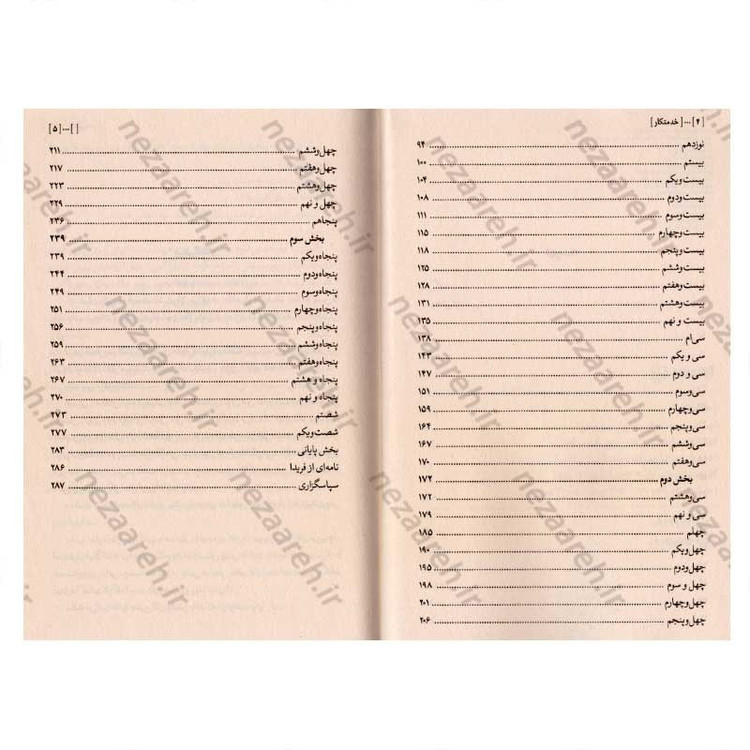 [۴]...[خدمتکار]
نوزدهم ۹۴
بیستم ۱۰۰
بیست‌و‌یکم ۱۰۴
بیست‌و‌دوم ۱۰۸
بیست‌و‌سوم ۱۱۱
بیست‌و‌چهارم ۱۱۵
بیست‌و‌پنجم ۱۱۸
بیست‌و‌ششم ۱۲۵
بیست‌و‌هفتم ۱۲۸
بیست‌و‌هشتم ۱۳۱
بیست و نهم ۱۳۵
سی‌ام ۱۳۸
سی و یکم ۱۴۳
سی و دوم ۱۴۷
سی‌و‌سوم ۱۵۱
سی‌و‌چهارم ۱۵۹
سی‌و‌پنجم ۱۶۴
سی‌و‌ششم ۱۶۷
سی‌و‌هفتم ۱۷۰
بخش دوم ۱۷۲
سی‌و‌هشتم ۱۷۲
سی و نهم ۱۷۹
چهلم ۱۸۵
چهل‌و‌یکم ۱۹۰
چهل‌و‌دوم ۱۹۵
چهل و سوم ۱۹۸
چهل‌و‌چهارم ۲۰۱
چهل‌و‌پنجم ۲۰۶
[ ]...[۵]
چهل‌و‌ششم ۲۱۱
چهل‌و‌هفتم ۲۱۷
چهل‌و‌هشتم ۲۲۳
چهل و نهم ۲۲۹
پنجاهم ۲۳۶
بخش سوم ۲۳۹
پنجاه‌و‌یکم ۲۳۹
پنجاه‌و‌دوم ۲۴۴
پنجاه‌و‌سوم ۲۴۹
پنجاه‌و‌چهارم ۲۵۱
پنجاه‌و‌پنجم ۲۵۶
پنجاه‌و‌ششم ۲۵۹
پنجاه‌و‌هفتم ۲۶۳
پنجاه و هشتم ۲۶۷
پنجاه و نهم ۲۷۰
شصتم ۲۷۳
شصت‌و‌یکم ۲۷۷
بخش پایانی ۲۸۳
نامه‌ای از فریدا ۲۸۶
سپاسگزاری ۲۸۷
nezaareh.ir